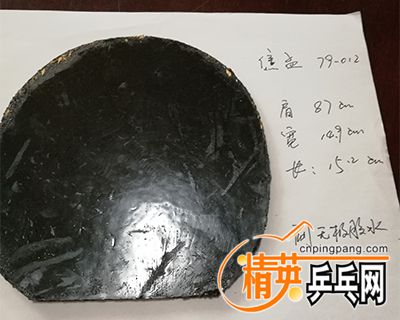 焦盖 79-012
肩 87cm
宽 14.9cm
长: 15.2cm
无极胶水
cnpingpang.com
精英乒乓网